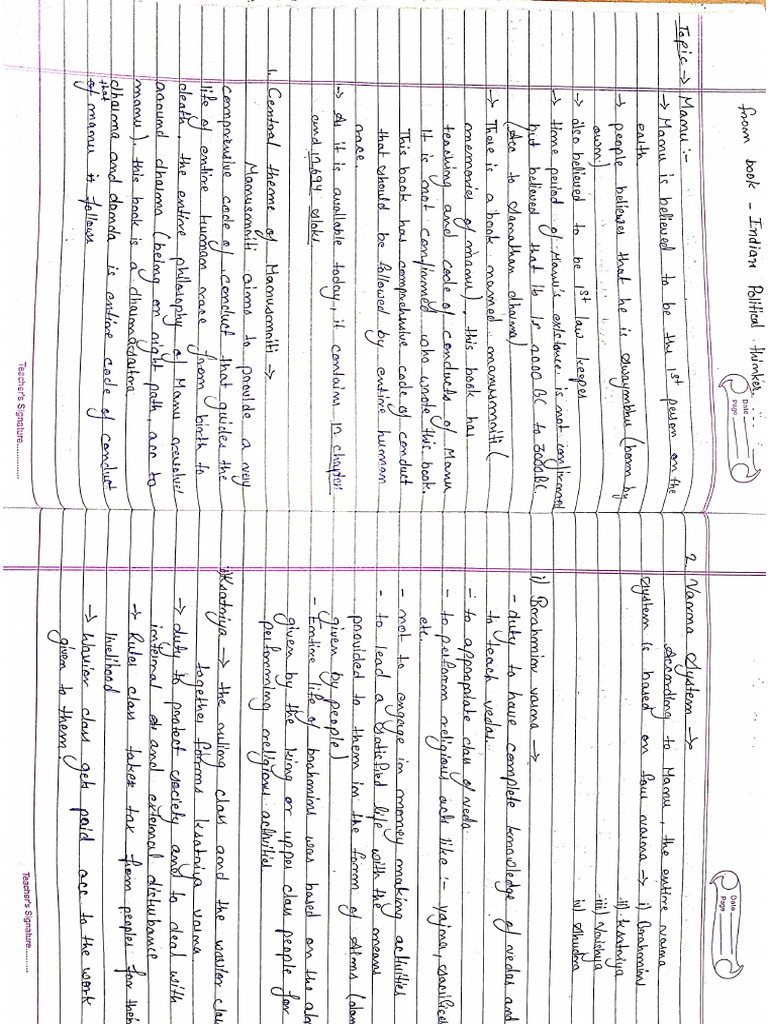 from book - Indian Political thinker
Date
Page
Topic → Manu :-
→ Manu is believed to be the 1st person on the
earth
→ people believes that he is swaymbhu (born by
own)
→ also believed to be 1st law keeper
→ time period of Manu's existence is not confirmed
but believed that it is 2000 BC to 3000 BC
(Acc to Sanathan dharma)
→ There is a book named manusmriti (
memories of manu), this book has
teaching and code of conducts of Manu
It is not confirmed who wrote this book.
This book has comprehensive code of conduct
that should be followed by entire human
race.
→ As it is available today, it contains 12 chapter
and 12,694 slok
1. Central theme of Manusmriti →
Manusmriti aims to provide a very
comprensive code of conduct that guides the
life of entire human race from birth to
death. the entire philosophy of Manu revolve
around dharma (being on right path, acc to
manu). this book is a dharmasastra
dharma and danda is entire code of conduct
that
of manu is follows
Teacher's Signature
Date
Page
2. Varna System →
According to Manu, the entire varna
system is based on four varna → i) Brahmin
ii) ksatriya
iii) Vaishya
iv) Shudra
i) Brahmin varna →
- duty to have complete knowledge of vedas and
to teach vedas.
- to appropriate class of veda
- to perform religious act like :- yajna, sacrifices
etc.
- not to engage in money making activities
- to lead a satisfied life with the means
provided to them in the form of Alms (dan
given by people)
- Entire life of brahmins was based on the alm
given by the king or upper class people for
performing religious activities
ii) Ksatriya → the ruling class and the warior clas
together forms ksatriya varna
→ duty to protect society and to deal with
internal and external disturbance
→ Ruler class takes tax from peoples for their
livelihood
→ Warior class get paid acc to the work
given to them
Teacher's Signature